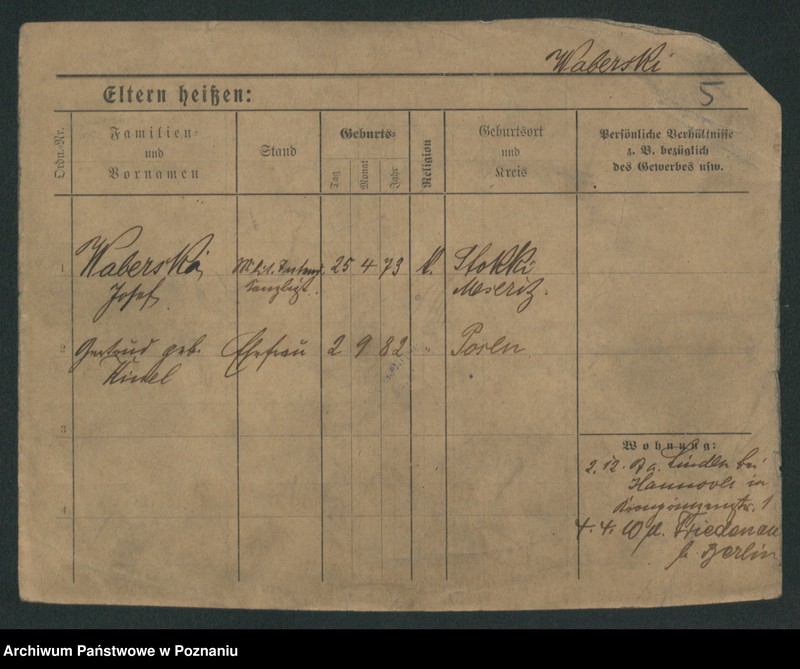 Waberski
5
Eltern heißen:
Ordn.-Nr.
Familien-
und
Vornamen
Stand
Geburts-
Tag
Monat
Jahr
Religion
Geburtsort
und
Kreis
Persönliche Verhältnisse
z. B. bezüglich
des Gewerbes usw.
1
Waberski
Josef
25 4 73
K.
Stokki
Meseritz.
2
Gertrud geb.
Ehefrau
2 9 82
"
Posen
3
4
Wohnung:
2. 12. Linden bei
Hannover in
1
4. 4. Friedenau
b. Berlin
Archiwum Państwowe w Poznaniu